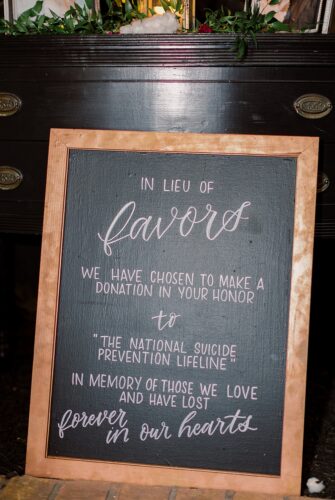 IN LIEU OF
favors
WE HAVE CHOSEN TO MAKE A
DONATION IN YOUR HONOR
to
"THE NATIONAL SUICIDE
PREVENTION LIFELINE"
IN MEMORY OF THOSE WE LOVE
AND HAVE LOST
forever
in our hearts